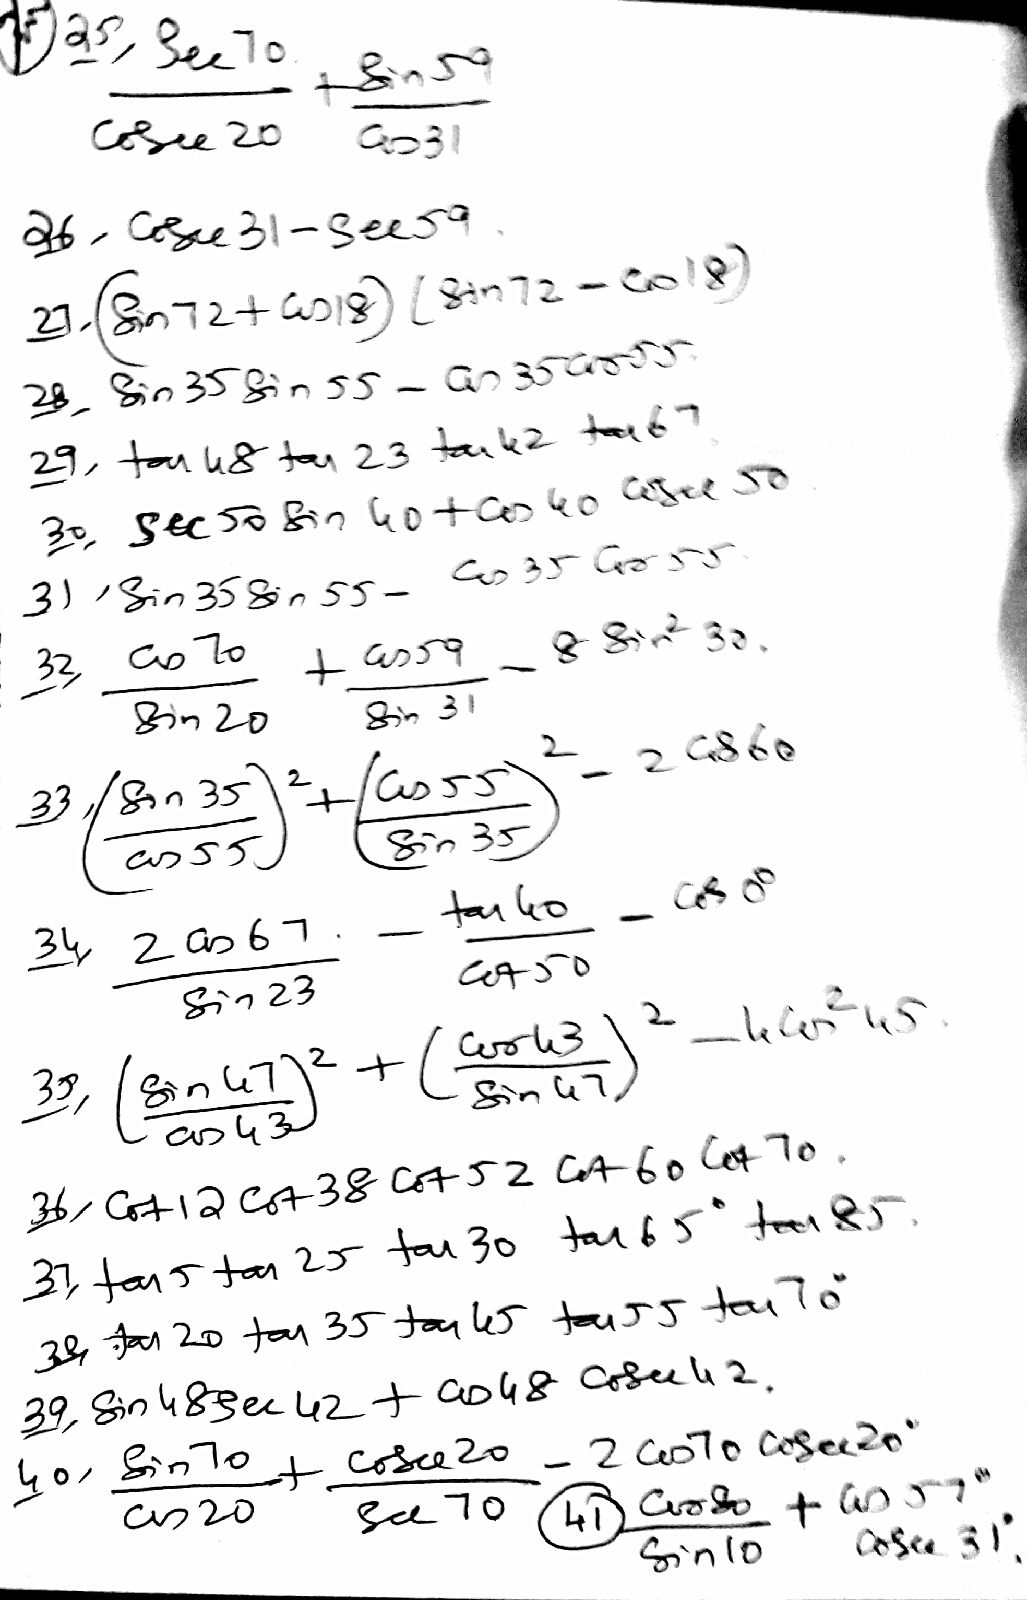 25, Sec 70 / Cosec 20 + Sin 59 / Cos 31
26, Cosec 31 - Sec 59.
27, (Sin 72 + Cos 18) (Sin 72 - Cos 18)
28, Sin 35 Sin 55 - Cos 35 Cos 55.
29, tan 48 tan 23 tan 42 tan 67.
30, Sec 50 Sin 40 + Cos 40 Cosec 50
31, Sin 35 Sin 55 - Cos 35 Cos 55.
32, Cos 70 / Sin 20 + Cos 59 / Sin 31 - 8 Sin² 30.
33, (Sin 35 / Cos 55)² + (Cos 55 / Sin 35)² - 2 Cos 60
34, 2 Cos 67 / Sin 23 - tan 40 / Cot 50 - Cos 0°
35, (Sin 47 / Cos 43)² + (Cos 43 / Sin 47)² - 4 Cos² 45.
36, Cot 12 Cot 38 Cot 52 Cot 60 Cot 70.
37, tan 5 tan 25 tan 30 tan 65° tan 85.
38, tan 20 tan 35 tan 45 tan 55 tan 70°
39, Sin 48 Sec 42 + Cos 48 Cosec 42.
40, Sin 70 / Cos 20 + Cosec 20 / Sec 70 - 2 Cos 70 Cosec 20°
41) Cos 80 / Sin 10 + Cos 57° Cosec 31°.